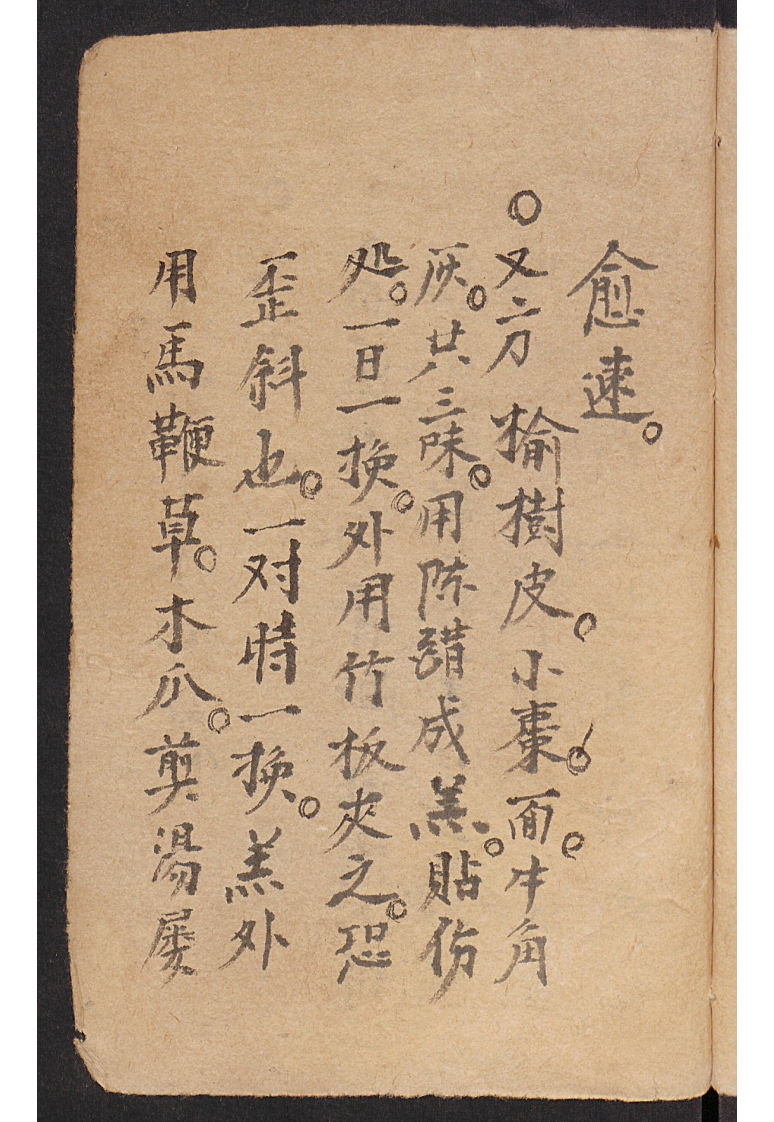 愈速。
○又二方榆樹皮。小棗。面。牛角
灰。共三味。用陈醋成羔。貼伤
処。一日一换。外用竹板夾之。恐
歪斜也。一对時一换。羔外
用馬鞭草。木瓜。煎湯屡